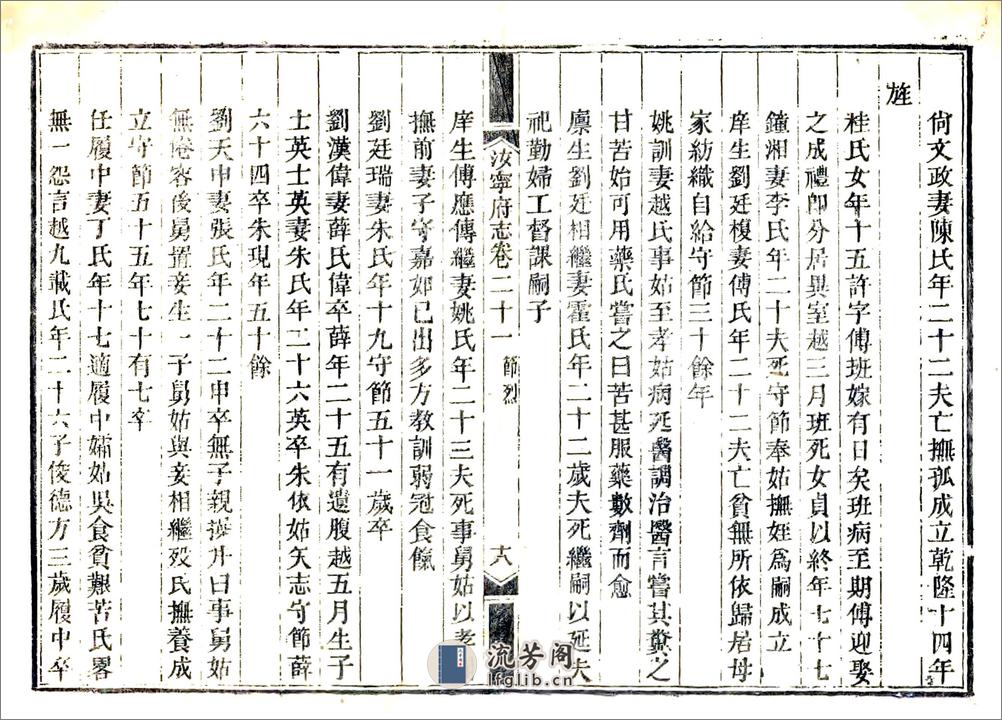 尙文政妻陳氏年二十二夫亡撫孤成立乾隆十四年
旌
桂氏女年十五許字傅班嫁有日矣班病至期傅迎娶
之成禮卽分居異室越三月班死女貞以終年七十七
鐘湘妻李氏年二十夫死守節奉姑撫姪爲嗣成立
庠生劉廷榎妻傅氏年二十二夫亡貧無所依歸居母
家紡織自給守節三十餘年
姚訓妻越氏事姑至孝姑病延醫調治醫言嘗其糞之
甘苦始可用藥氏嘗之曰苦甚服藥數劑而愈
廪生劉廷相繼妻霍氏年二十二歲夫死繼嗣以延夫
祀勤婦工督課嗣子
汝寧府志卷二十一 節烈 十八
庠生傅應傳繼妻姚氏年二十三夫死事舅姑以孝
撫前妻子守嘉如已出多方教訓弱冠食餼
劉廷瑞妻朱氏年十九守節五十一歲卒
劉漢偉妻薛氏偉卒薛年二十五有遺腹越五月生子
士英士英妻朱氏年二十六英卒朱依姑矢志守節薛
六十四卒朱現年五十餘
劉天申妻張氏年二十二申卒無子親操井臼事舅姑
無倦容後舅置妾生一子舅姑與妾相繼歿氏撫養成
立守節五十五年七十有七卒
任履中妻丁氏年十七適履中孀姑吳食貧艱苦氏畧
無一怨言越九載氏年二十六子俊德方三歲履中卒
流芳阁
lfglib.cn